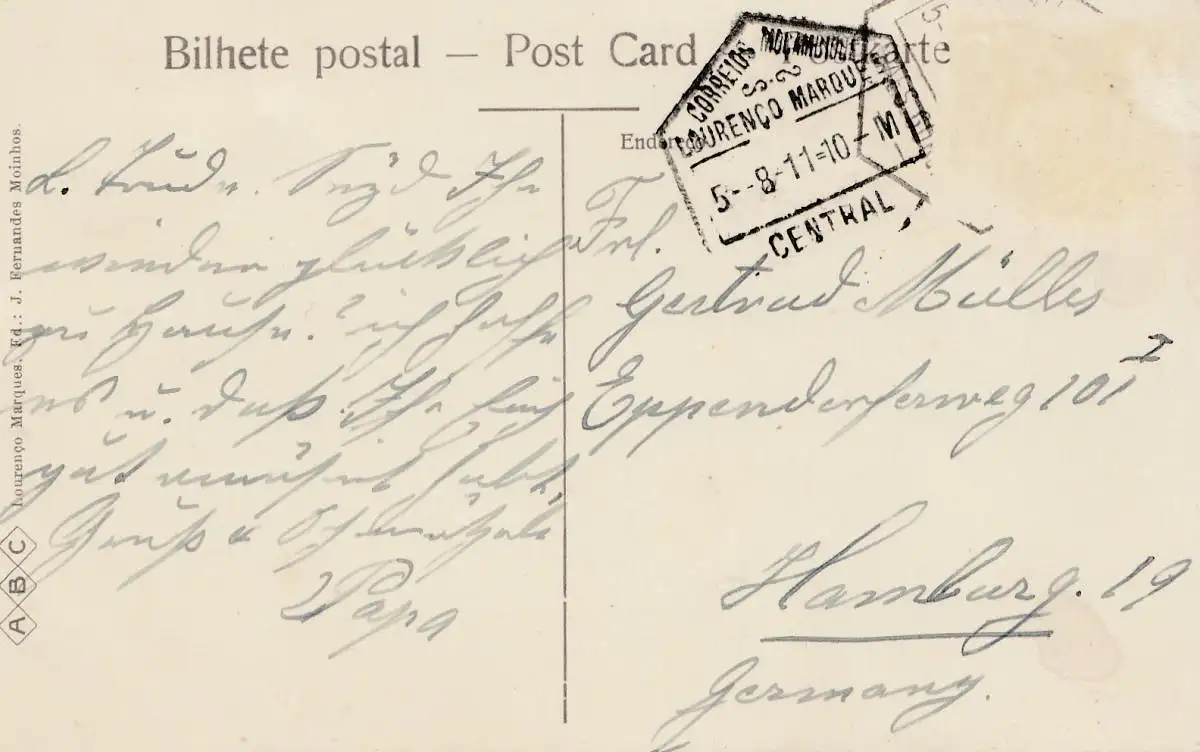 Bilhete postal — Post Card — Postkarte
CORREIOS MOÇAMBIQUE
LOURENÇO MARQUES
5-8-11=10-M
CENTRAL
Endereço
L. Trude. Seyd Ihr
wieder glücklich
zu Hause? ich hoffe
es u. daß Ihr Euch
gut amüsirt habt,
Gruß u
Papa
Frl.
Gertrud Müller
Eppendorferweg 101 I
Hamburg. 19
Germany.
Lourenço Marques. Ed.: J. Fernandes Moinhos.
A B C